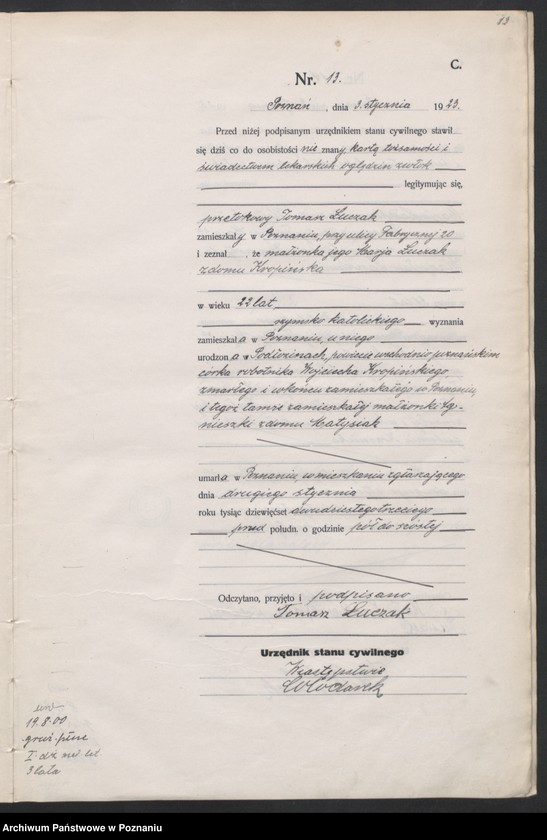 13
C.
Nr. 13.
Poznań, dnia 3. stycznia 1923.
Przed niżej podpisanym urzędnikiem stanu cywilnego stawił
się dziś co do osobistości nie znany, kartą tożsamości i
świadectwem lekarskich oględzin zwłok
legitymując się,
przetokowy Tomasz Łuczak
zamieszkały w Poznaniu, przy ulicy Fabrycznej 20
i zeznał, że małżonka jego Marja Łuczak
z domu Kropińska
w wieku 22 lat
rzymsko katolickiego wyznania
zamieszkała w Poznaniu, u niego
urodzona w Podłozinach, powiecie wschodnio poznańskim
córka robotnika Wojciecha Kropińskiego
zmarłego i wkońcu zamieszkałego w Poznaniu,
i tegoż tamże zamieszkałej małżonki Ag-
nieszki z domu Matysiak
umarła w Poznaniu, w mieszkaniu zgłaszającego
dnia drugiego stycznia
roku tysiąc dziewięćset dwudziestego trzeciego
przed połudn. o godzinie pół do szóstej
Odczytano, przyjęto i podpisano
Tomasz Łuczak
Urzędnik stanu cywilnego
W zastępstwie
19.8.00
3 lata
Archiwum Państwowe w Poznaniu